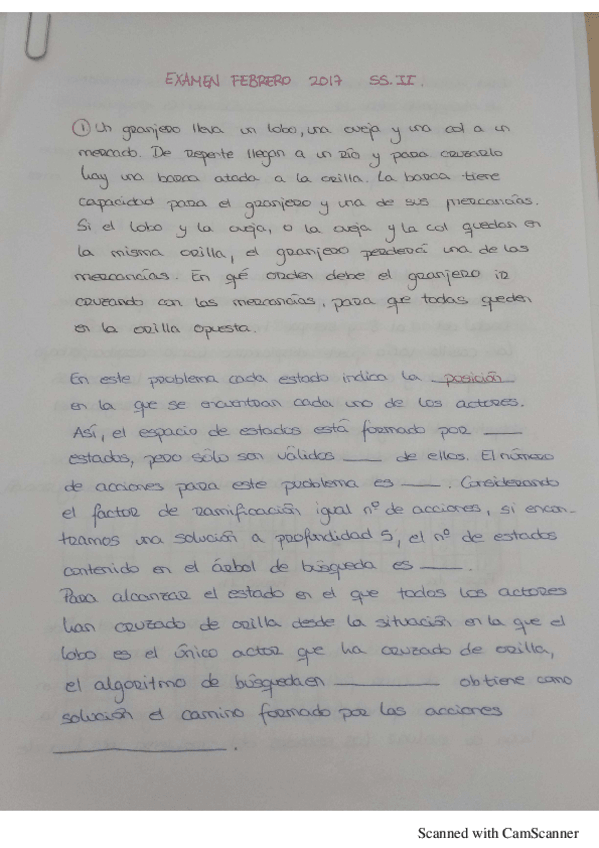 EXAMEN FEBRERO 2017 SS.II.
① Un granjero lleva un lobo, una oveja y una col a un
mercado. De repente llegan a un río y para cruzarlo
hay una barca atada a la orilla. La barca tiene
capacidad para el granjero y una de sus mercancías.
Si el lobo y la oveja, o la oveja y la col quedan en
la misma orilla, el granjero perderá una de las
mercancías. En qué orden debe el granjero ir
cruzando con las mercancías, para que todas queden
en la orilla opuesta.
En este problema cada estado indica la posición
en la que se encuentran cada uno de los actores.
Así, el espacio de estados está formado por ___
estados, pero sólo son válidos ___ de ellos. El número
de acciones para este problema es ___. Considerando
el factor de ramificación igual nº de acciones, si encon-
tramos una solución a profundidad 5, el nº de estados
contenido en el árbol de búsqueda es ___.
Para alcanzar el estado en el que todos los actores
han cruzado de orilla desde la situación en la que el
lobo es el único actor que ha cruzado de orilla,
el algoritmo de búsqueda en ___ obtiene como
solución el camino formado por las acciones
___.
Scanned with CamScanner